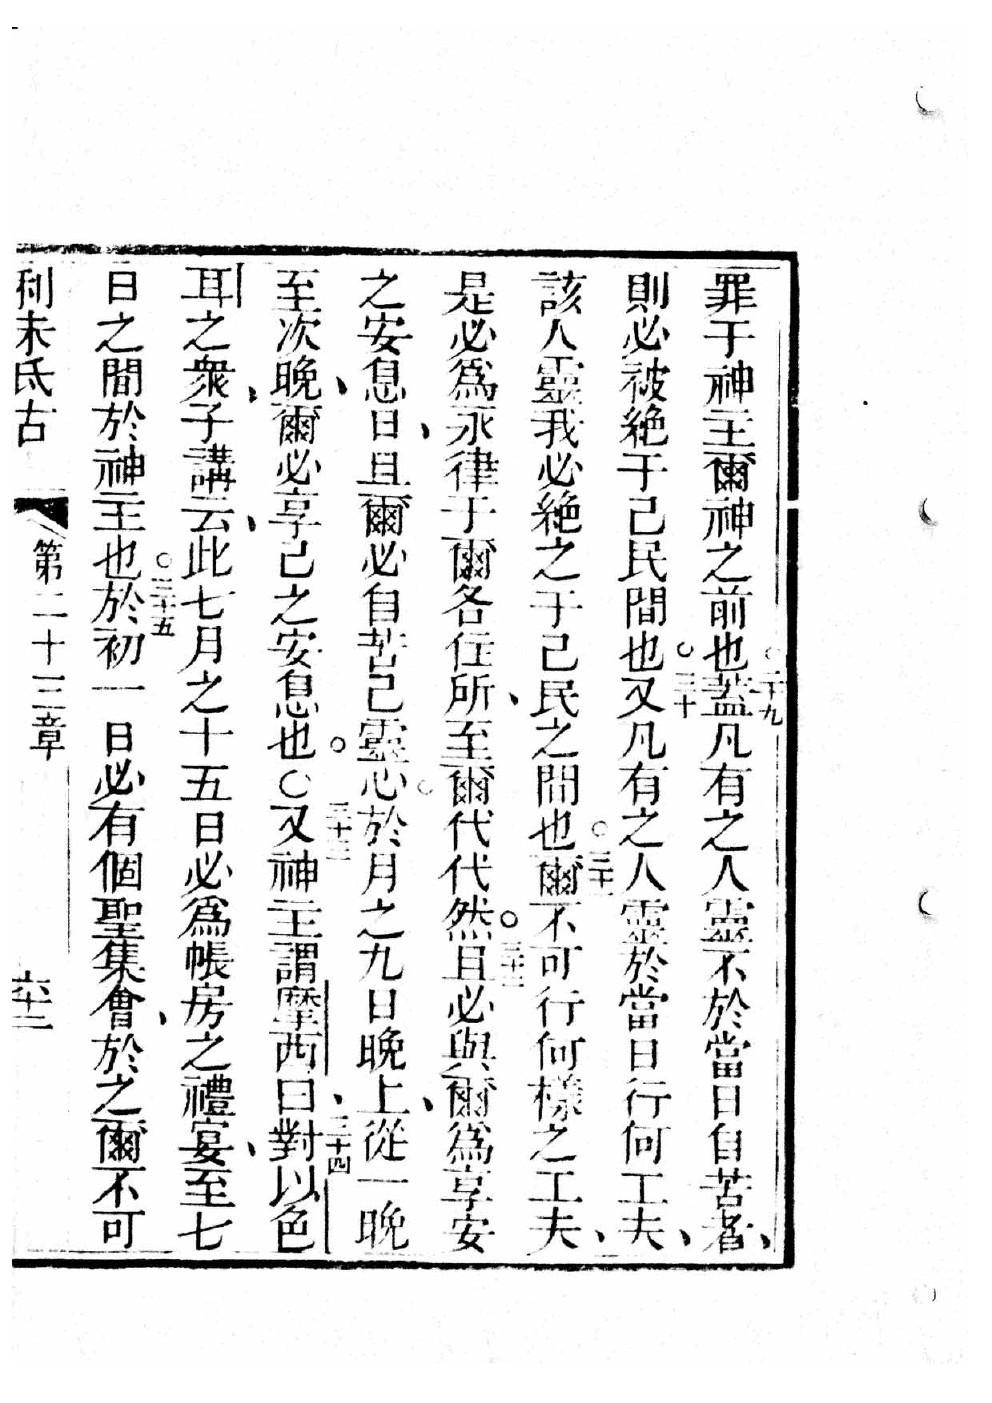 罪于神主爾神之前也○二十九蓋凡有之人靈不於當日自苦者、
則必被絶于己民間也○三十又凡有之人靈於當日行何工夫、
該人靈我必絶之于己民之間也○三十一爾不可行何樣之工夫、
是必爲永律于爾各住所、至爾代代然○三十二且必與爾爲享安
之安息日、且爾必自苦己靈心○於月之九日晚上、從一晚
至次晚、爾必享己之安息也○○三十三又神主謂摩西曰、三十四對以色
耳之衆子講云、此七月之十五日必爲帳房之禮宴、至七
日之間於神主也○三十五於初一日必有個聖集會、於之爾不可
利未氏古 第二十三章 六十二